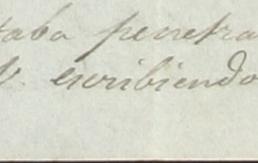 taba penetra
escribiendo